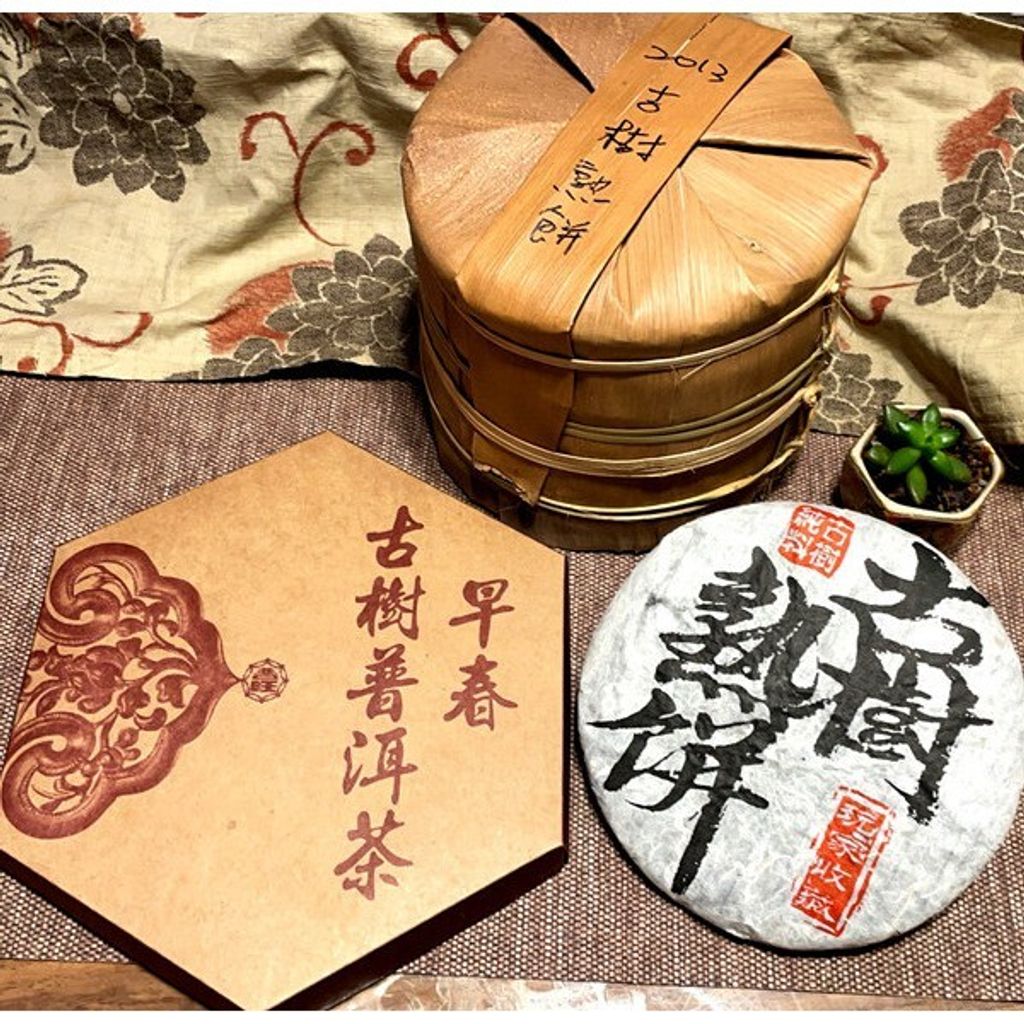 2013
古樹
熟餅
早春
古樹普洱茶
古樹
純料
古樹
熟餅
玩家收藏